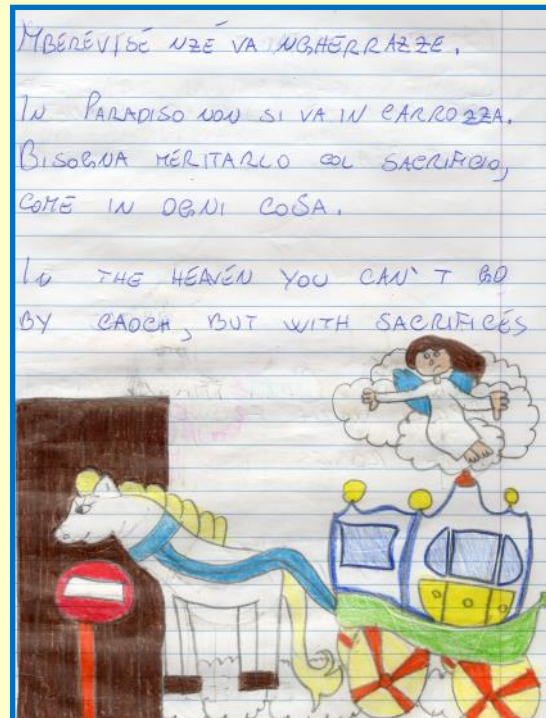 MBERÉVISÉ NZÉ VA NGHERRAZZE.
IN PARADISO NON SI VA IN CARROZZA.
BISOGNA MERITARLO COL SACRIFICIO,
COME IN OGNI COSA.
IN THE HEAVEN YOU CAN'T GO
BY CAOCH, BUT WITH SACRIFICES